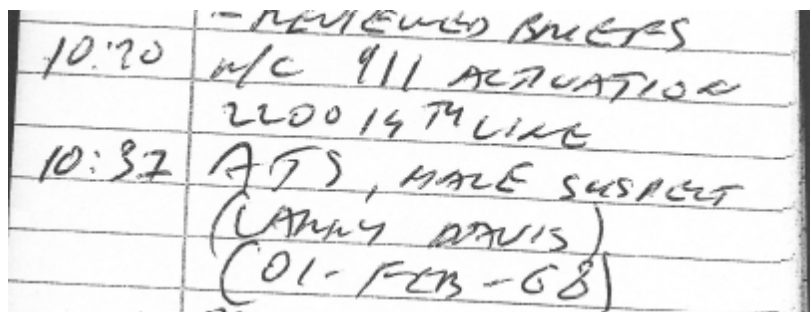 - REVIEWED BRIEFS
10:20 R/C 911 ACTIVATION
2200 14TH LINE
10:37 ATS, MALE SUSPECT
(LARRY DAVIS)
(01-FEB-68)